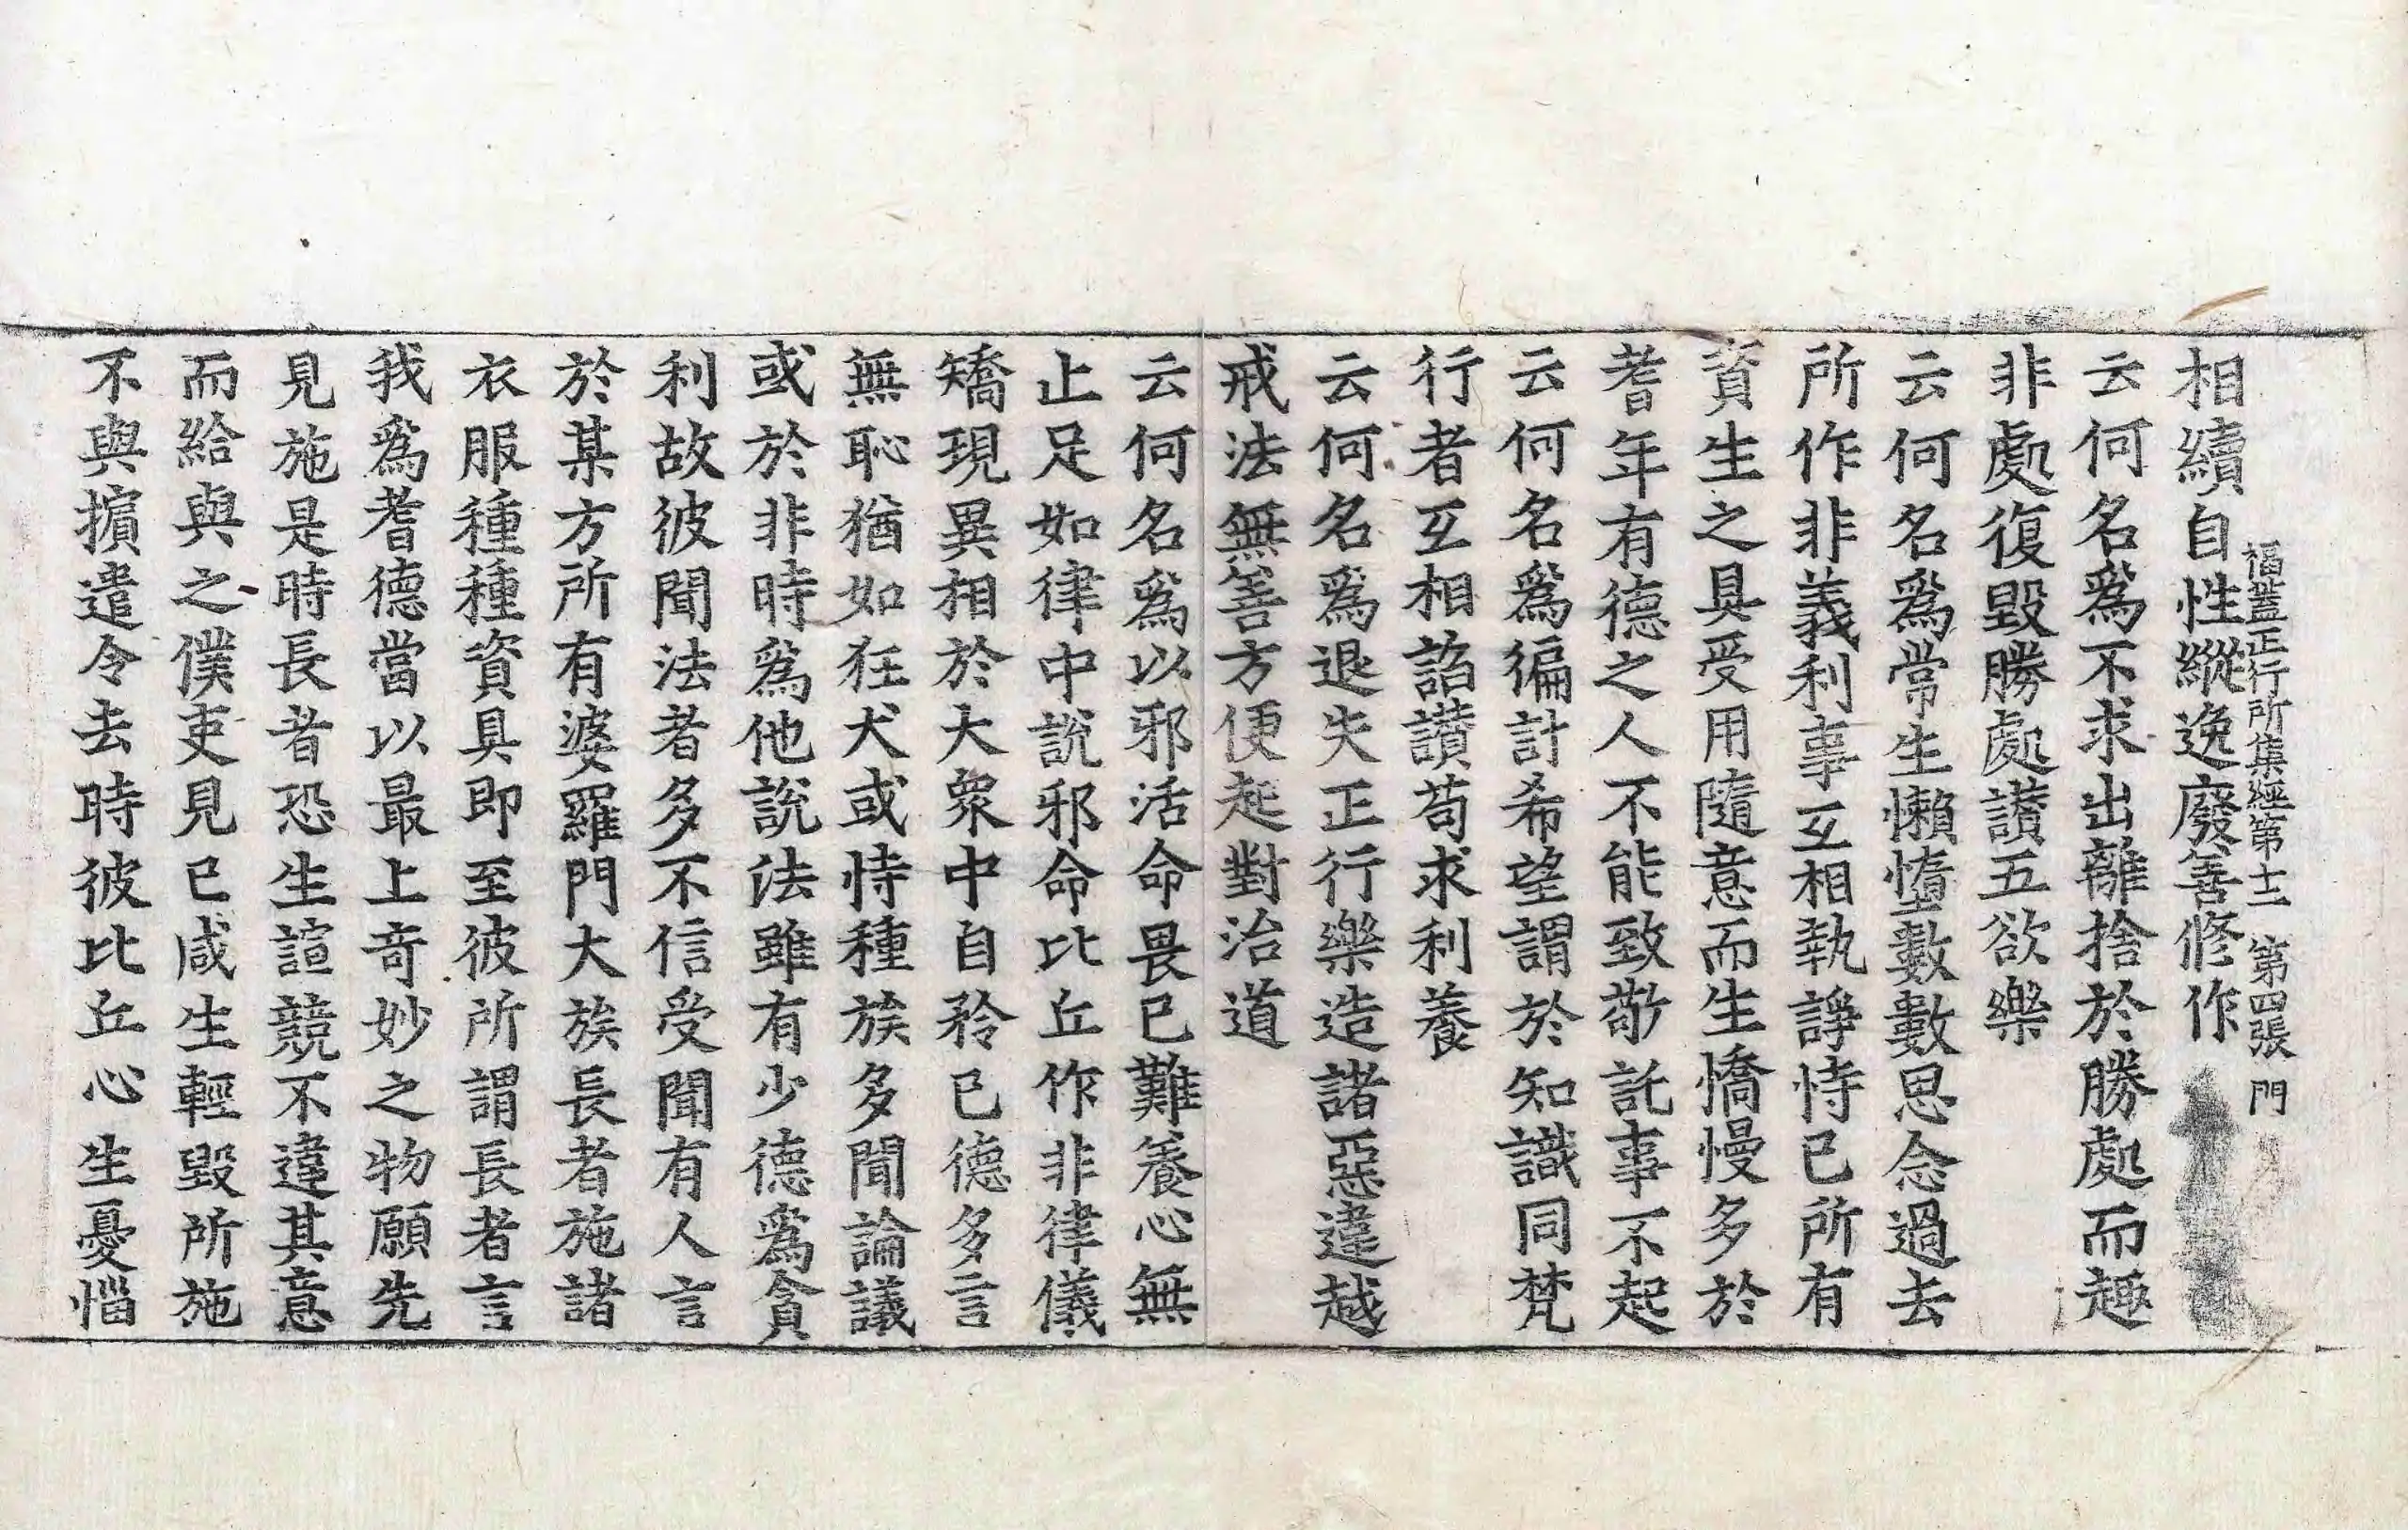 福蓋正行所集經第十二 第四張 門
相續自性縱逸廢善修作
云何名爲不求出離捨於勝處而趣
非處復毀勝處讃五欲樂
云何名爲常生懶墮數數思念過去
所作非義利事互相執諍恃已所有
資生之具受用隨意而生憍慢多於
耆年有德之人不能致敬託事不起
云何名爲徧計希望謂於知識同梵
行者互相諂讃苟求利養
云何名爲退失正行樂造諸惡違越
戒法無善方便起對治道
云何名爲以邪活命畏已難養心無
止足如律中說邪命比丘作非律儀
矯現異相於大衆中自矜已德多言
無恥猶如狂犬或恃種族多聞論議
或於非時爲他說法雖有少德爲貪
利故彼聞法者多不信受聞有人言
於某方所有婆羅門大族長者施諸
衣服種種資具即至彼所謂長者言
我爲耆德當以最上奇妙之物願先
見施是時長者恐生諠競不違其意
而給與之僕吏見已咸生輕毀所施
不與擯遣令去時彼比丘心生憂惱